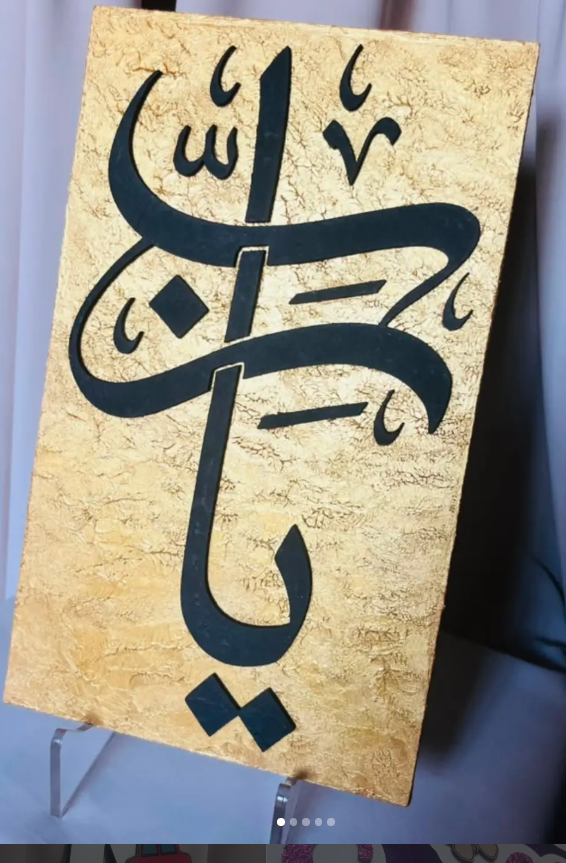 يا رب